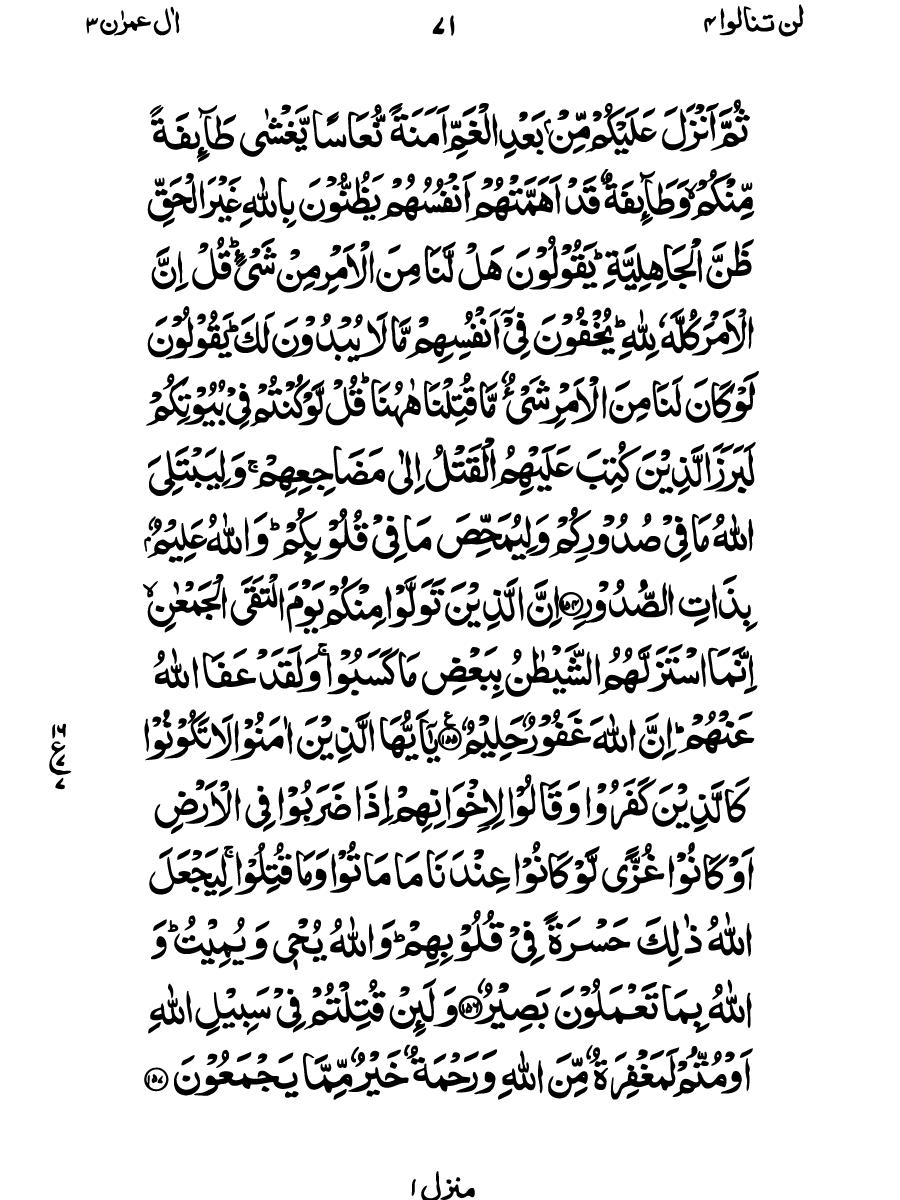 لن تنالوا ۴ ۷۱ اٰل عمرٰن ۳
ثُمَّ اَنْزَلَ عَلَيْكُمْ مِّنْۢ بَعْدِ الْغَمِّ اَمَنَةً نُّعَاسًا يَّغْشٰى طَآئِفَةً
مِّنْكُمْ ۙ وَطَآئِفَةٌ قَدْ اَهَمَّتْهُمْ اَنْفُسُهُمْ يَظُنُّوْنَ بِاللّٰهِ غَيْرَ الْحَقِّ
ظَنَّ الْجَاهِلِيَّةِ ؕ يَقُوْلُوْنَ هَلْ لَّنَا مِنَ الْاَمْرِ مِنْ شَىْءٍ ؕ قُلْ اِنَّ
الْاَمْرَ كُلَّهٗ لِلّٰهِ ؕ يُخْفُوْنَ فِىْۤ اَنْفُسِهِمْ مَّا لَا يُبْدُوْنَ لَكَ ؕ يَقُوْلُوْنَ
لَوْ كَانَ لَنَا مِنَ الْاَمْرِ شَىْءٌ مَّا قُتِلْنَا هٰهُنَا ؕ قُلْ لَّوْ كُنْتُمْ فِىْ بُيُوْتِكُمْ
لَبَرَزَ الَّذِيْنَ كُتِبَ عَلَيْهِمُ الْقَتْلُ اِلٰى مَضَاجِعِهِمْ ۚ وَلِيَبْتَلِىَ
اللّٰهُ مَا فِىْ صُدُوْرِكُمْ وَلِيُمَحِّصَ مَا فِىْ قُلُوْبِكُمْ ؕ وَاللّٰهُ عَلِيْمٌۢ
بِذَاتِ الصُّدُوْرِ ﴿۱۵۴﴾ اِنَّ الَّذِيْنَ تَوَلَّوْا مِنْكُمْ يَوْمَ الْتَقَى الْجَمْعٰنِ ۙ
اِنَّمَا اسْتَزَلَّهُمُ الشَّيْطٰنُ بِبَعْضِ مَا كَسَبُوْا ۚ وَلَقَدْ عَفَا اللّٰهُ
عَنْهُمْ ؕ اِنَّ اللّٰهَ غَفُوْرٌ حَلِيْمٌ ﴿۱۵۵﴾ ع يٰۤاَيُّهَا الَّذِيْنَ اٰمَنُوْا لَا تَكُوْنُوْا
۱۶ ع ۷ ۷
كَالَّذِيْنَ كَفَرُوْا وَقَالُوْا لِاِخْوَانِهِمْ اِذَا ضَرَبُوْا فِى الْاَرْضِ
اَوْ كَانُوْا غُزًّى لَّوْ كَانُوْا عِنْدَنَا مَا مَاتُوْا وَمَا قُتِلُوْا ۚ لِيَجْعَلَ
اللّٰهُ ذٰلِكَ حَسْرَةً فِىْ قُلُوْبِهِمْ ؕ وَاللّٰهُ يُحْىٖ وَيُمِيْتُ ؕ وَ
اللّٰهُ بِمَا تَعْمَلُوْنَ بَصِيْرٌ ﴿۱۵۶﴾ وَلَئِنْ قُتِلْتُمْ فِىْ سَبِيْلِ اللّٰهِ
اَوْ مُتُّمْ لَمَغْفِرَةٌ مِّنَ اللّٰهِ وَرَحْمَةٌ خَيْرٌ مِّمَّا يَجْمَعُوْنَ ﴿۱۵۷﴾
منزل ۱